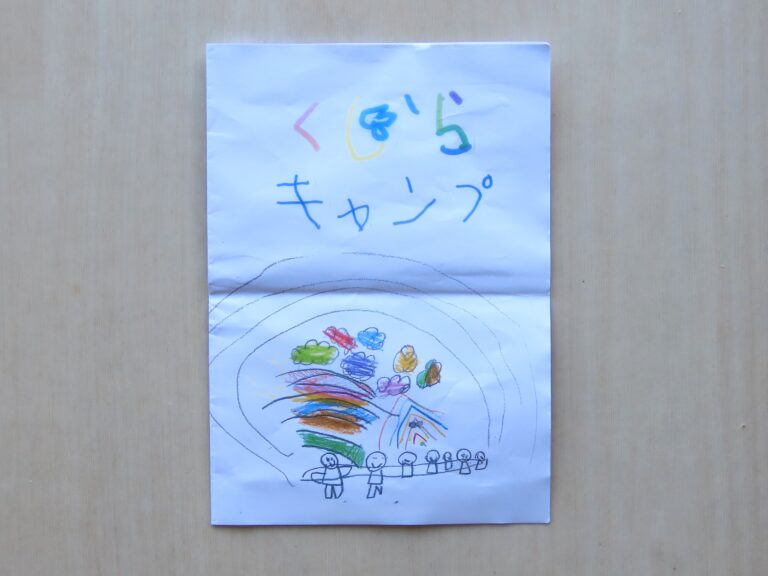 くじら
キャンプ